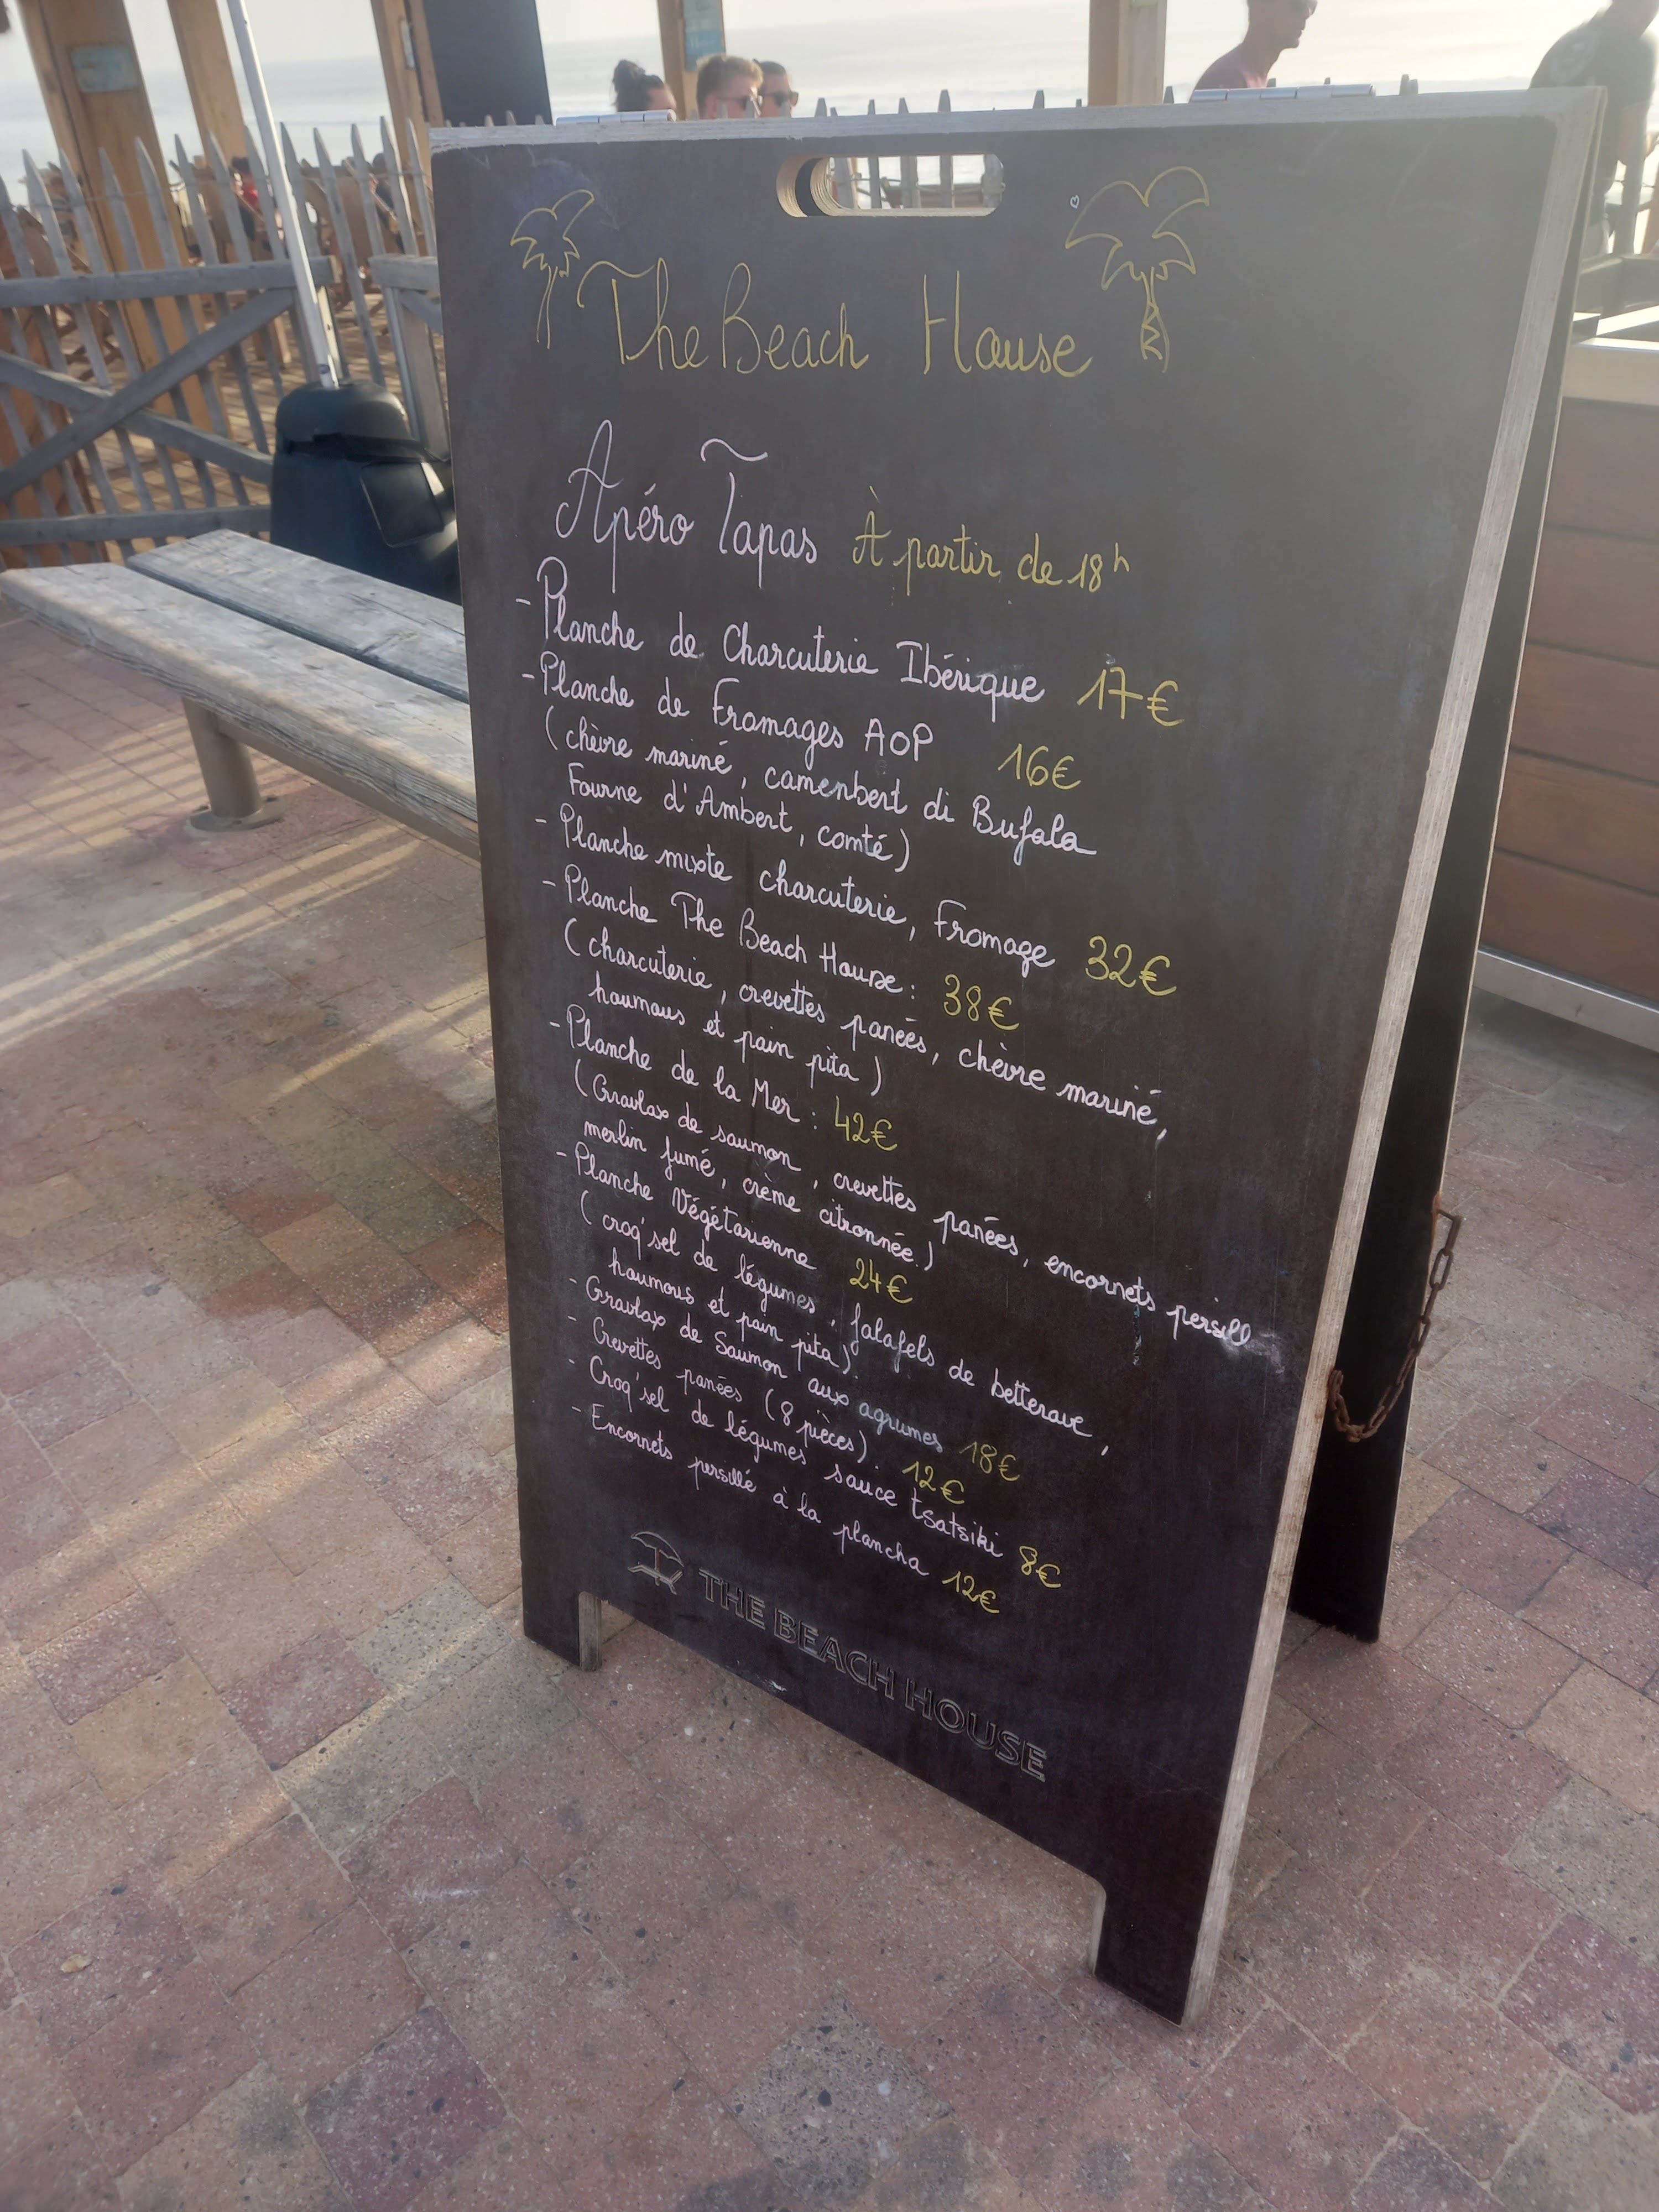 The Beach House
Apéro Tapas À partir de 18h
- Planche de Charcuterie Ibérique 17€
- Planche de Fromages AOP 16€
(chèvre mariné, camenbert di Bufala
Fourne d'Ambert, comté)
- Planche mixte charcuterie, Fromage 32€
- Planche The Beach House : 38€
(charcuterie, crevettes panées, chèvre mariné,
houmous et pain pita)
- Planche de la Mer : 42€
(Gravlax de saumon, crevettes panées, encornets persill
merlin fumé, crème citronnée)
- Planche Végétarienne 24€
(croq'sel de légumes, falafels de betterave,
houmous et pain pita)
- Gravlax de Saumon aux agrumes 18€
- Crevettes panées (8 pièces) 12€
- Croq'sel de légumes sauce tsatsiki 8€
- Encornets persillé à la plancha 12€
THE BEACH HOUSE